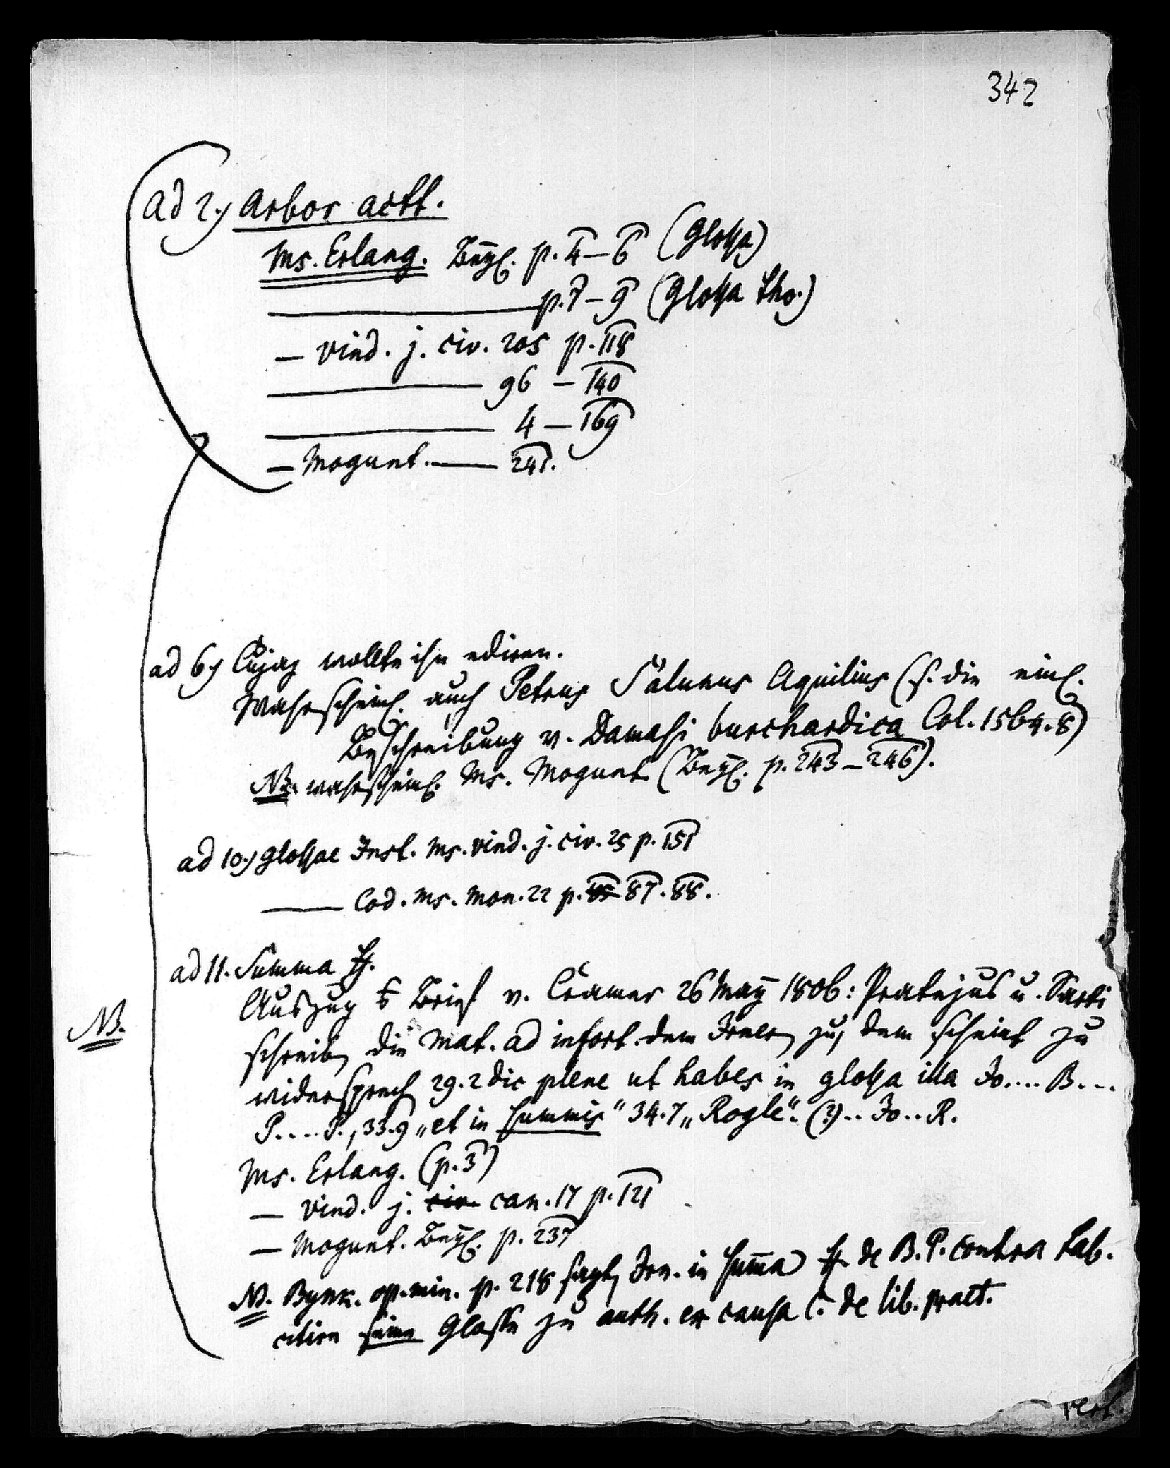 342
ad 2.) Arbor actt.
Ms. Erlang. Beyl. p. 4–6 (Glossa)
p. 7–9 (Glossa Tho.)
— vind. j. civ. 205 p. 118
96 – 140
4 – 169
— Mogunt. — 241.
ad 6.) Cujaz wollte ihn ediren.
Wahrscheinl. auch Petrus Aquilius (s. die
Beschreibung v. Damasi burchardica Col. 1564. 8)
NB. wahrscheinl. Ms. Mogunt (Beyl. p. 243–246).
ad 10.) Glossae Inst. Ms. vind. j. civ. 25 p. 151
Cod. Ms. Mon. 22 p. 87. 88.
ad 11. Summa ff.
Auszug Brief v. Cramer 26 May 1806: Pratejus u. Sarti
NB.
schreiben die Mat. ad infort. dem Irner zu, dem scheint zu
widersprech 29. 2 dic plene ut habes in glossa illa Jo.... B....
P.... P., 33. 9 „et in summis" 34. 7 „Rogle". (?).. Jo.. R.
Ms. Erlang. (p. 3)
— vind. j. civ. can. 17 p. 121
— Mogunt. Beyl. p. 237
NB. Bynk. op. min. p. 218 sagt, Irn. in Summa ff. de B. P. contra tab.
citire seine Glosse zu auth. ex causa C. de lib. praet.
vert.